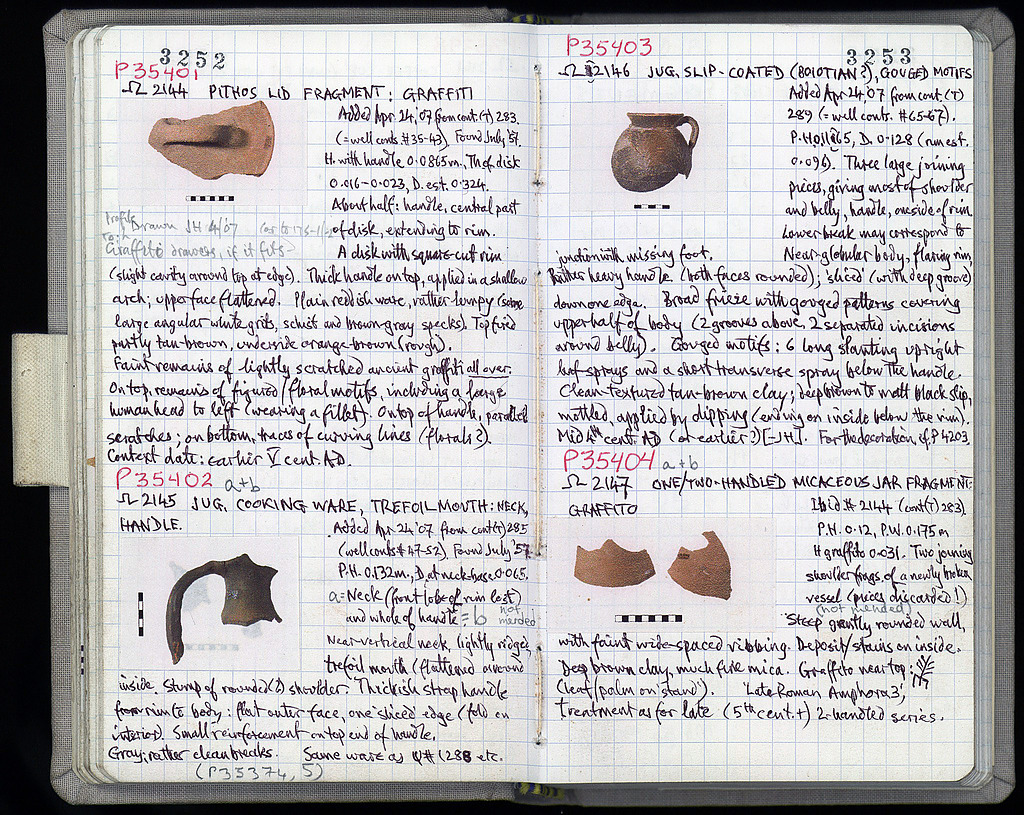 3252
P35401
Ω 2144 PITHOS LID FRAGMENT: GRAFFITI
Added Apr. 24, '07 from cont. (T) 283.
(= well conts. #35-43). Found July '57.
H. with handle 0.0865m., Th. of disk
0.016-0.023, D. est. 0.324.
About half: handle, central part
of disk, extending to rim.
Profile Drawn JH 4/07
Graffito drawers, if it fits
A disk with square-cut rim
(slight cavity around top at edge). Thick handle on top, applied in a shallow
arch; upper face flattened. Plain reddish ware, rather lumpy (some
large angular white grits, schist and brown-gray specks). Top fired
partly tan-brown, underside orange-brown (rough).
Faint remains of lightly scratched ancient graffiti all over.
On top, remains of figured/floral motifs, including a large
human head to left (wearing a fillet). On top of handle, parallel
scratches; on bottom, traces of curving lines (florals?).
Context date: earlier V cent. A.D.
P35402 a+b
Ω 2145 JUG, COOKING WARE, TREFOIL MOUTH: NECK,
HANDLE.
Added Apr. 24 '07 from cont (T) 285
(well conts #47-52). Found July '57.
P.H. 0.132m., D. at neck-base 0.065.
a = Neck (front lobe of rim lost)
and whole of handle = b not mended
Near-vertical neck, lightly ridged,
trefoil mouth (flattened around
inside. Stump of rounded(?) shoulder. Thickish strap handle
from rim to body: flat outer face, one 'sliced' edge (fold on
interior). Small reinforcement on top end of handle.
Gray; rather clean breaks. Same ware as Ψ# 1288 etc.
(P35374, 5)
3253
P35403
Ω 2146 JUG, SLIP-COATED (BOIOTIAN?), GOUGED MOTIFS
Added Apr 24, '07 from cont. (T)
289 (= well conts. #65-67).
P.H. 0.1165, D. 0.128 (rim est.
0.096). Three large joining
pieces, giving most of shoulder
and belly, handle, one side of rim.
Lower break may correspond to
junction with missing foot.
Near-globular body, flaring rim,
Rather heavy handle (both faces rounded); 'sliced' (with deep groove)
down one edge. Broad frieze with gouged patterns covering
upper half of body (2 grooves above, 2 separated incisions
around belly). Gouged motifs: 6 long slanting upright
leaf-sprays and a short transverse spray below the handle.
Clean-textured tan-brown clay; deep brown to matt black slip,
mottled, applied by dipping (ending on inside below the rim).
Mid 4th cent. AD (or earlier?) [-JH]. For the decoration, cf. P 4203.
P35404 a+b
Ω 2147 ONE/TWO-HANDLED MICACEOUS JAR FRAGMENT:
GRAFFITO
Ibid # 2144 (cont (T) 283).
P.H. 0.12, P.W. 0.175 m
H graffito 0.031. Two joining
shoulder frags. of a newly broken
vessel (pieces discarded!)
(not mended)
Steep gently rounded wall,
with faint wide-spaced ribbing. Deposit/stains on inside.
Deep brown clay, much fine mica. Graffito near top:
(leaf/palm on 'stand'). 'Late Roman Amphora 3',
treatment as for late (5th cent. +) 2-handled series.